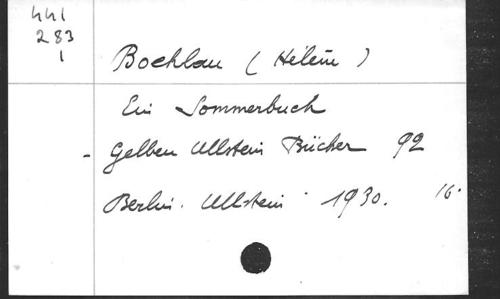 441
283
1
Boehlau (Hélène)
Ein Sommerbuch
- Gelben Ullstein Bücher 92
Berlin. Ullstein 1930. 16°